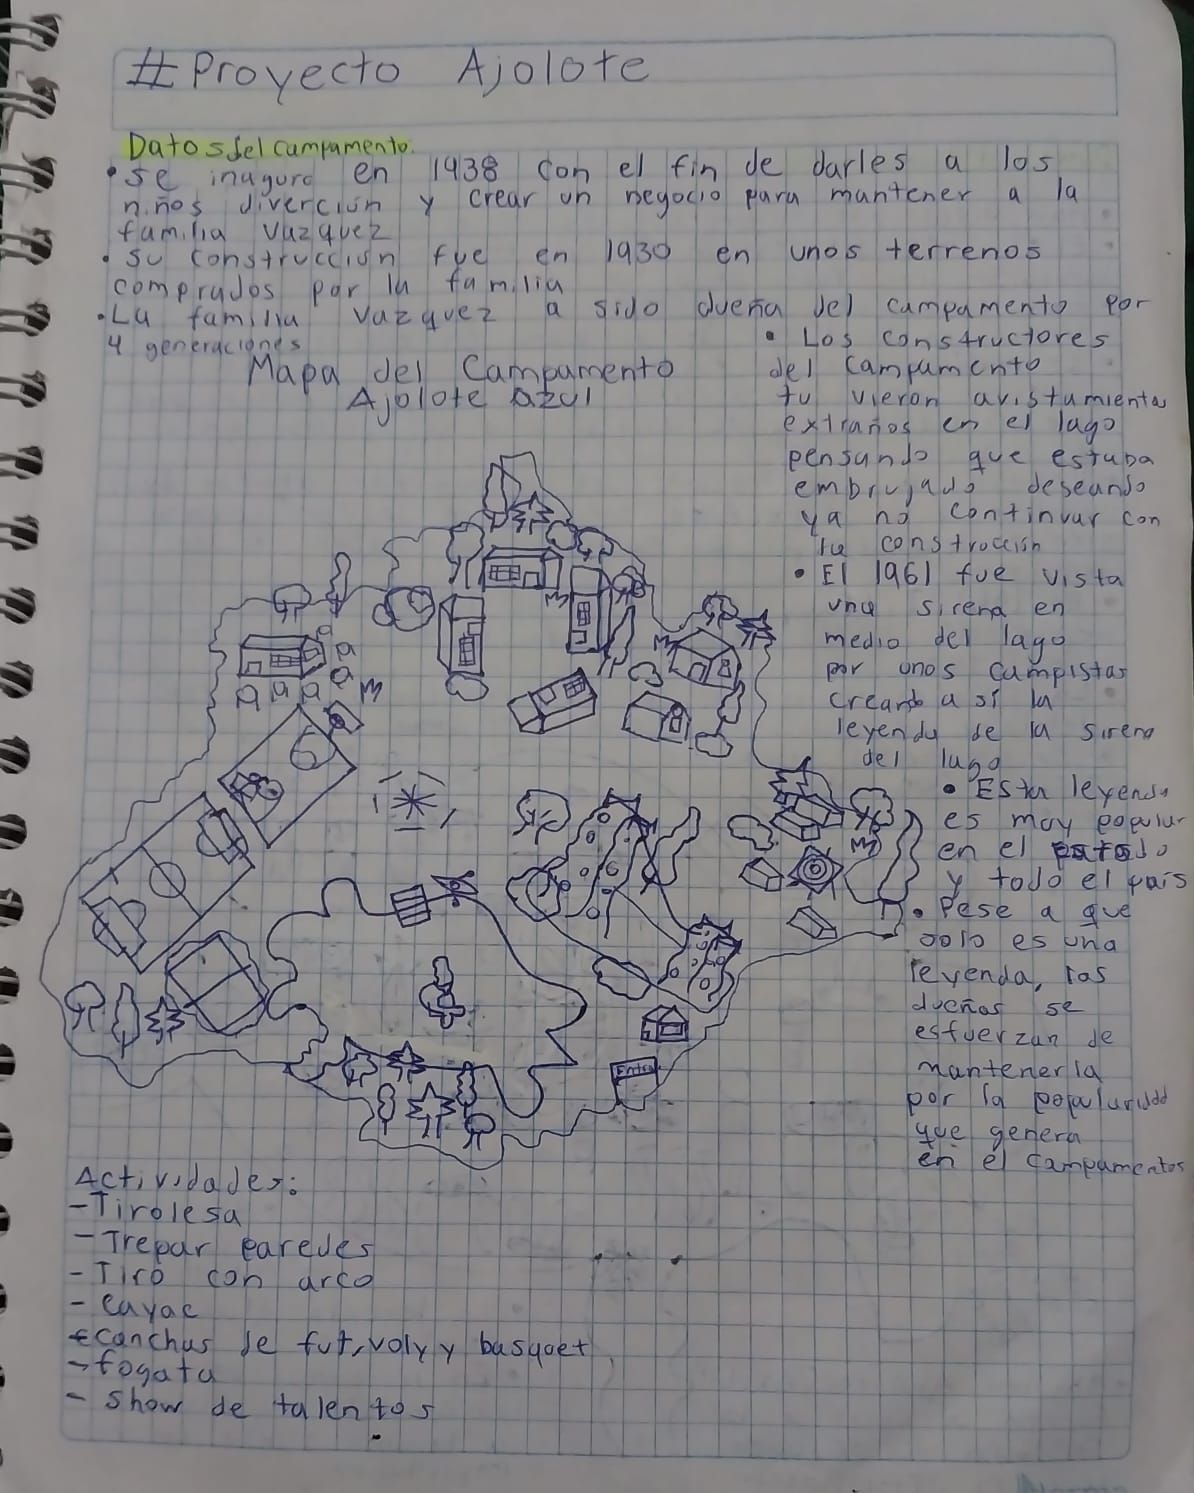 #Proyecto Ajolote
Datos del campamento.
• se inaguro en 1938 con el fin de darles a los
niños diverción y crear un negocio para mantener a la
familia Vazquez
• su construcción fue en 1930 en unos terrenos
comprados por la familia
• La familia Vazquez a sido dueña del campamento por
4 generaciones
Mapa del Campamento
Ajolote azul
• Los constructores
del campamento
tu vieron avistamientos
extraños en el lago
pensando que estaba
embrujado deseando
ya no continuar con
la construcción
• El 1961 fue vista
una sirena en
medio del lago
por unos campistas
creando a sí la
leyenda de la sirena
del lago
• Esta leyenda
es muy popular
en el estado
y todo el país
• Pese a que
solo es una
leyenda, los
dueños se
esfuerzan de
mantenerla
por la popularidad
que genera
en el campamentos
Entra
Actividades:
- Tirolesa
- Trepar paredes
- Tiro con arco
- Cayac
- canchas de fut, voly y basquet
- fogata
- show de talentos